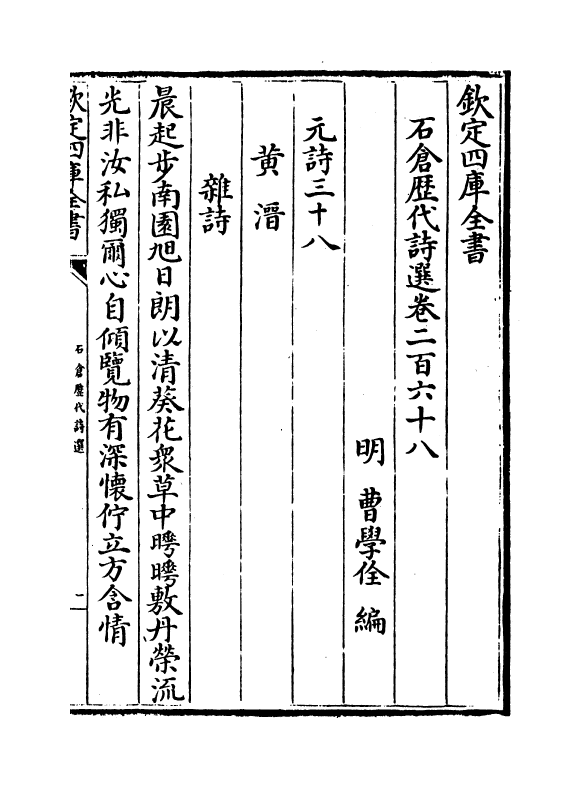 欽定四庫全書
石倉歴代詩選卷二百六十八
明 曹學佺 編
元詩三十八
黄溍
雜詩
晨起步南園旭日朗以清葵花衆草中㬇㬇敷丹榮流
光非汝私獨爾心自傾覽物有深懷佇立方含情
欽定四庫全書
石倉歴代詩選